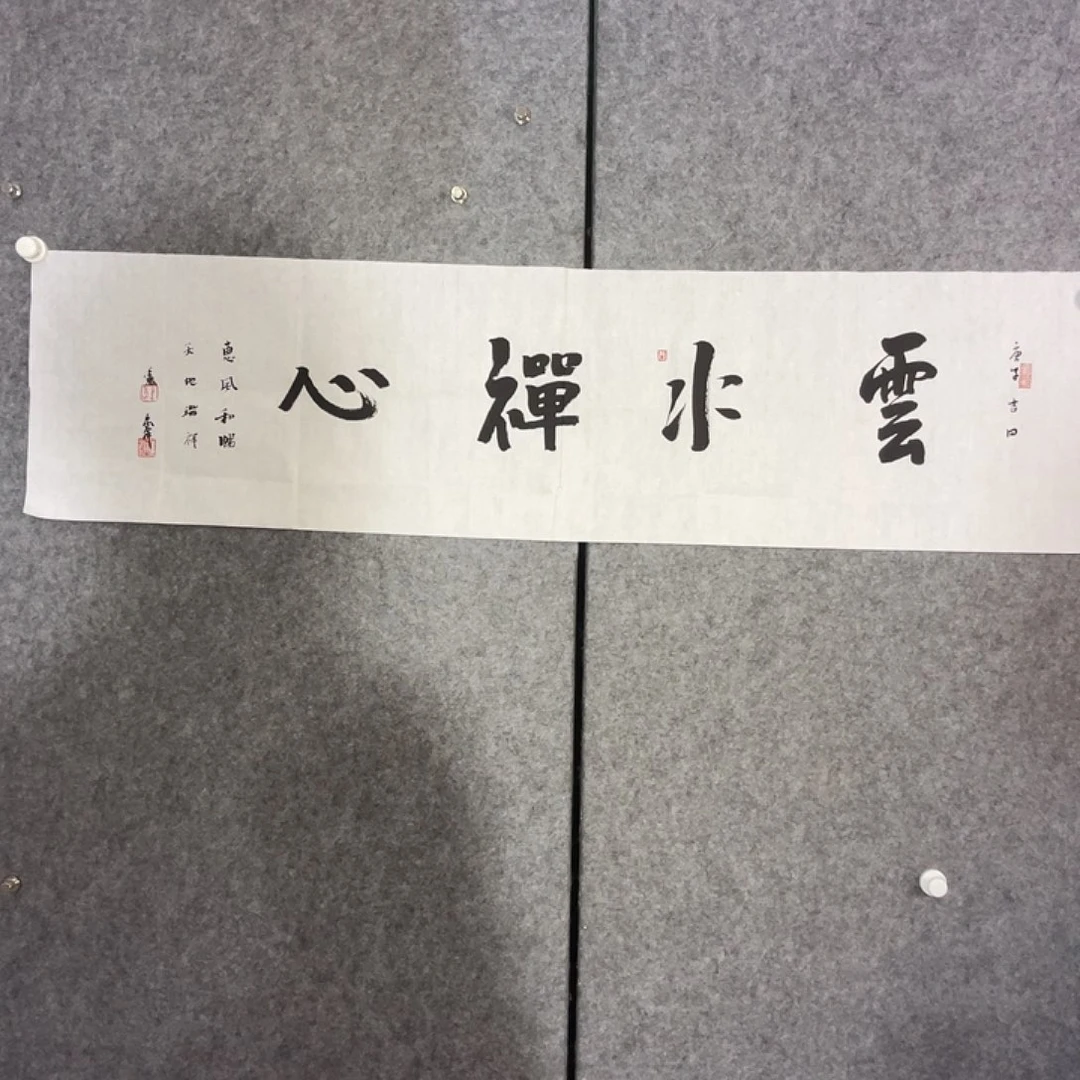 庚子吉日
雲水禪心
惠風和暢
天地瑞祥